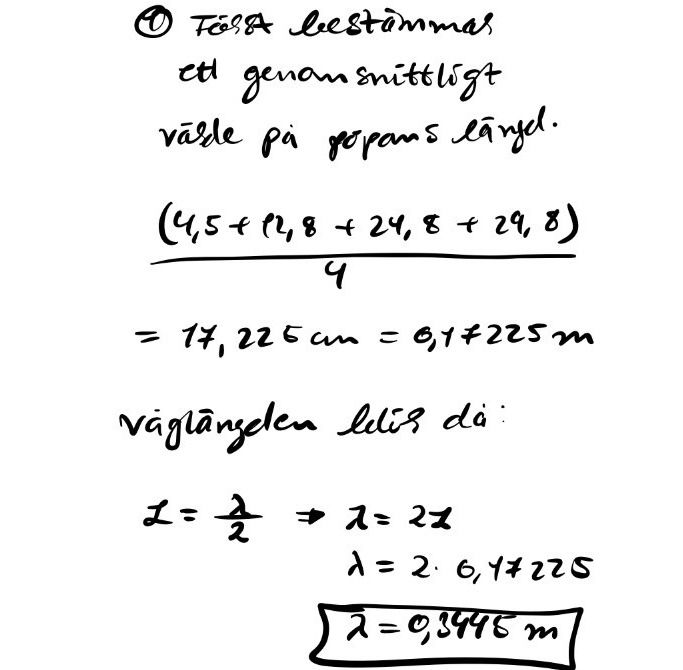 ① Först bestämmas
ett genomsnittligt
värde på pöpans längd.
(4,5 + 12,8 + 24,8 + 29,8)
4
= 17,225 cm = 0,17225 m
våglängden blir då:
L = λ/2 ⇒ λ = 2L
λ = 2 · 0,17225
λ = 0,3445 m